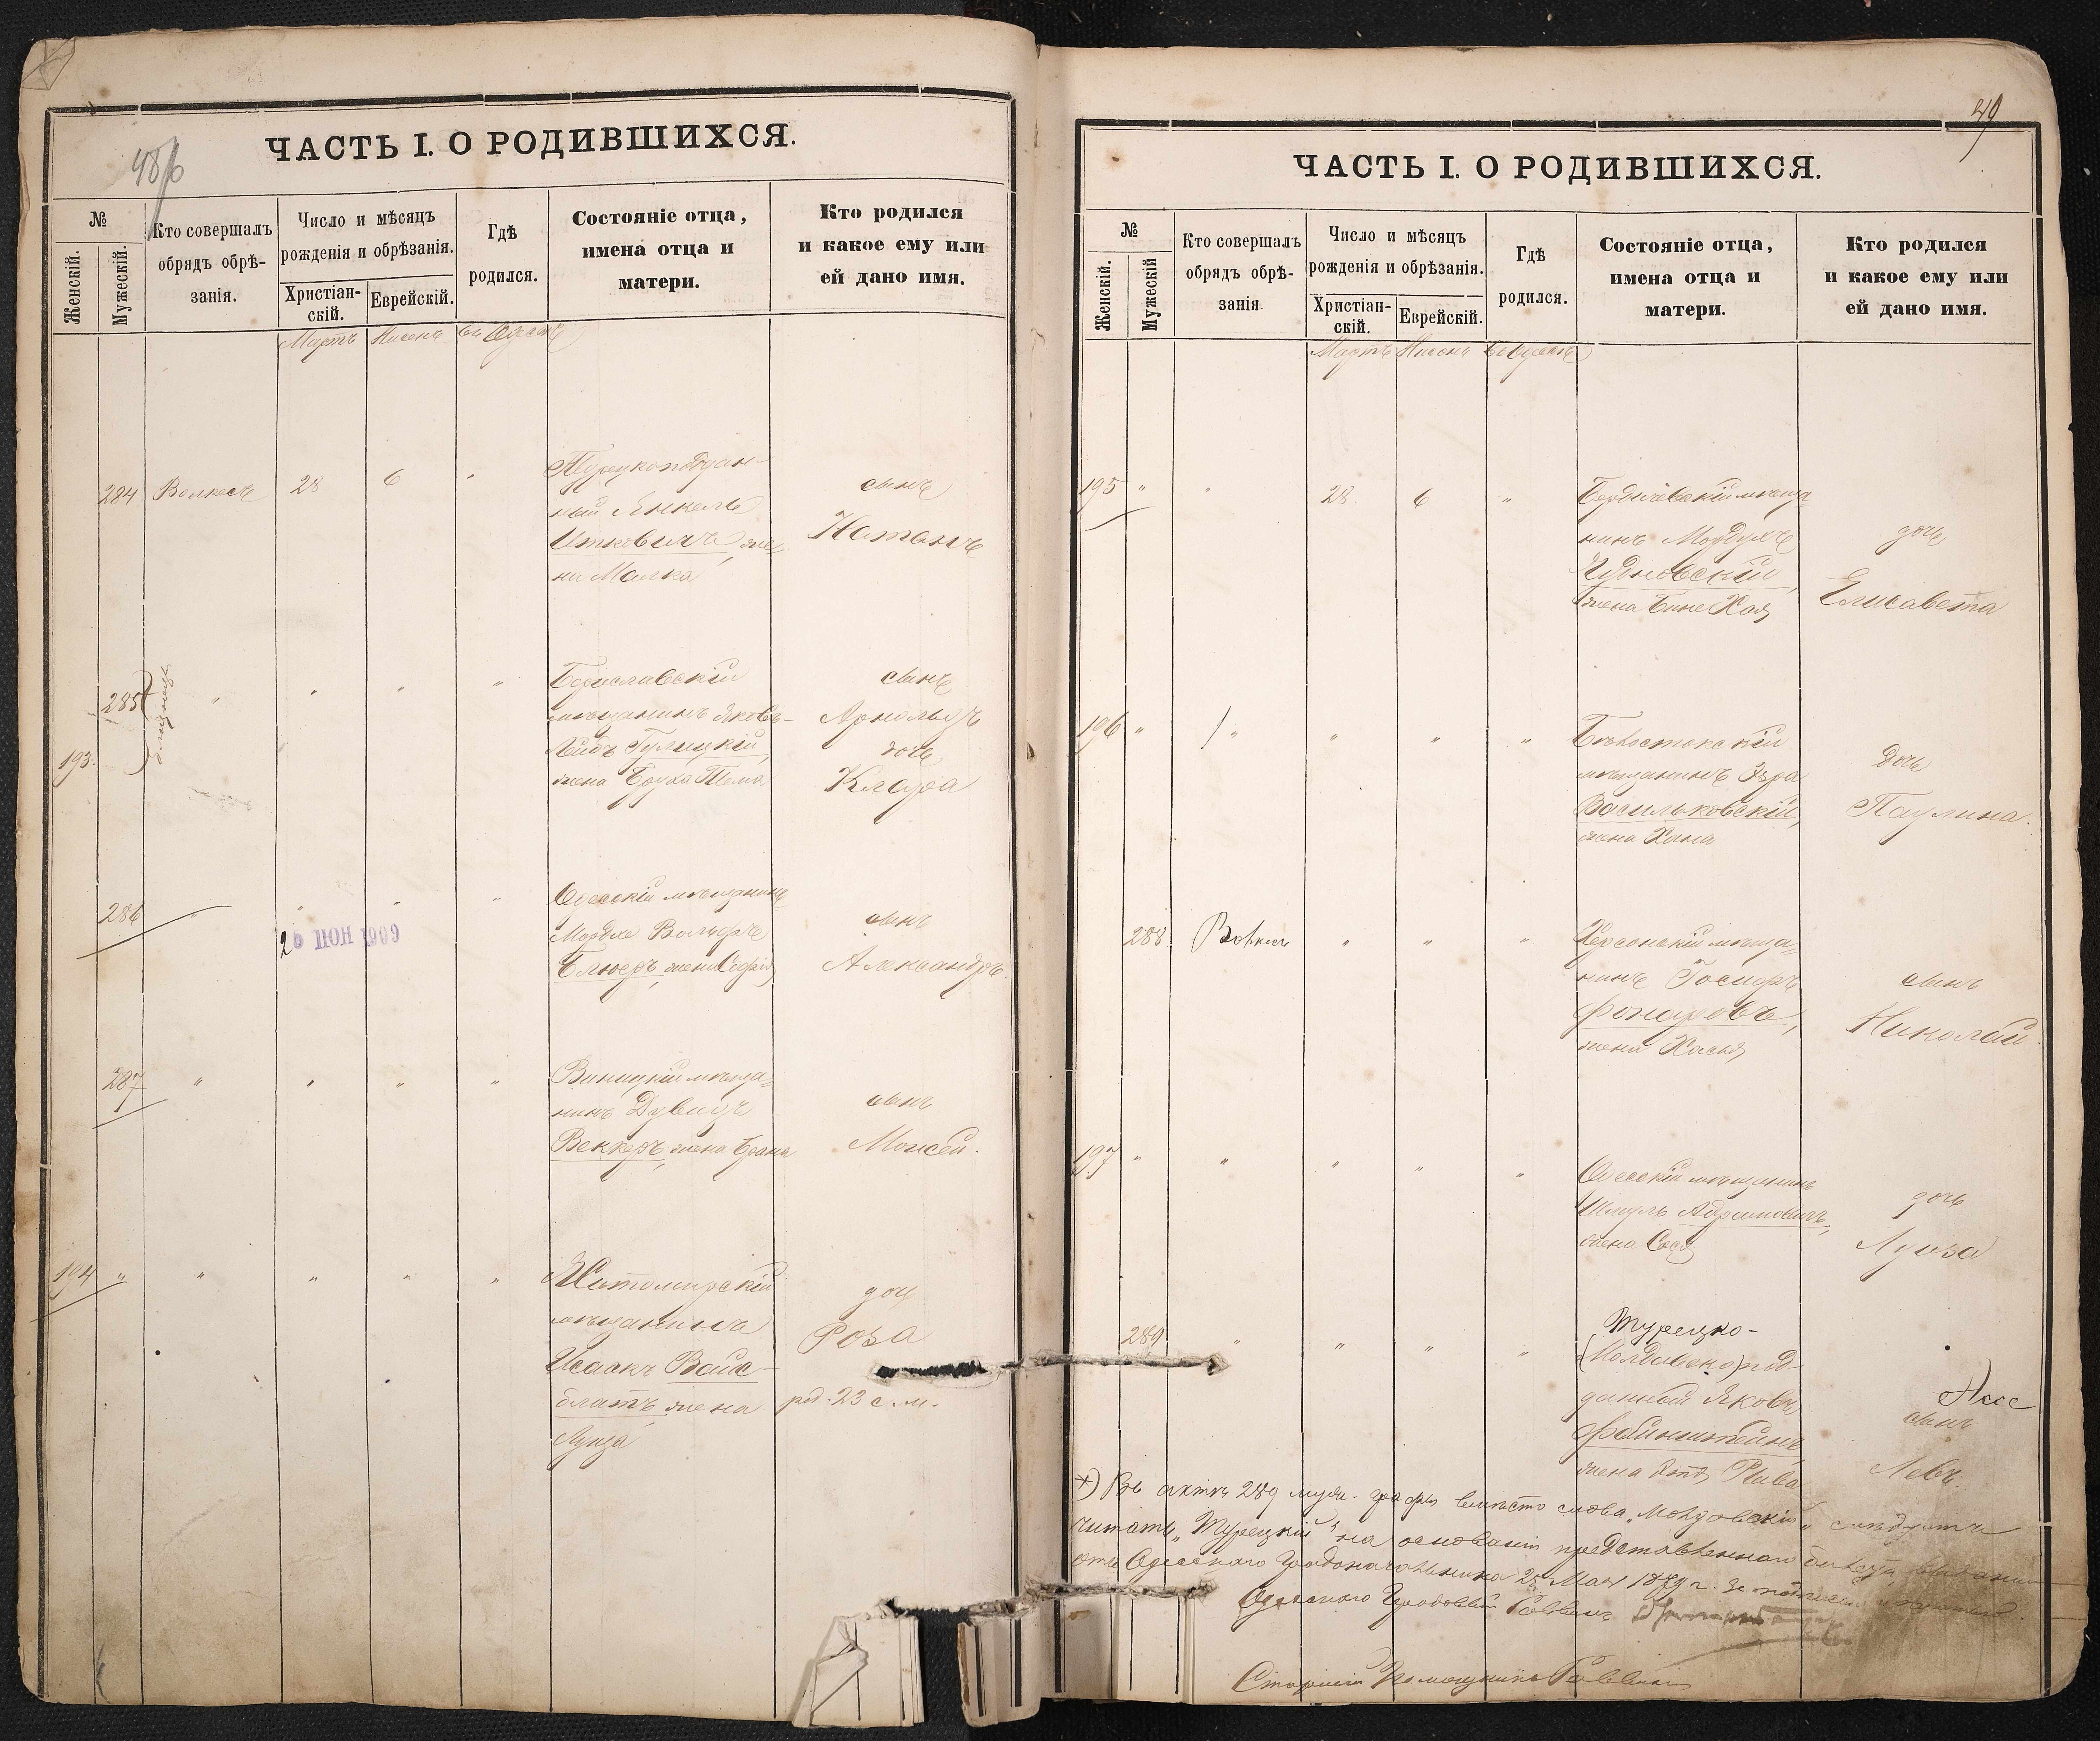 48
ЧАСТЬ I. О РОДИВШИХСЯ.
№
Женскій.
Мужескій.
Кто совершалъ
обрядъ обрѣ-
занія.
Число и мѣсяцъ
рожденія и обрѣзанія.
Христіан-
скій.
Еврейскій.
Гдѣ
родился.
Состояніе отца,
имена отца и
матери.
Кто родился
и какое ему или
ей дано имя.
Мартъ Нисонъ въ Одессѣ
284 Волкесъ 28 6 "
Турецкоподдан-
ный Янкель
Ицковичъ, же-
на Малка
сынъ
Натанъ
285
193.
близнецы
" " " "
Бериславскій
мѣщанинъ Яковъ-
Лейбъ Гулицкій,
жена Бруха Тема
сынъ
Арнольдъ
дочь
Клара
286 " " "
25 ІЮН 1909
Одесскій мѣщанинъ
Мордхе Вольфъ
Блюеръ, жена Софія
сынъ
Александръ.
287 " " " "
Виницкій мѣща-
нинъ Дувидъ
Веккеръ, жена Брана
сынъ
Моисей.
194 " " " " "
Житомирскій
мѣщанинъ
Исаакъ Вайс-
блатъ жена
Луиза
дочь
Роза
род. 23 с. м.
49
ЧАСТЬ I. О РОДИВШИХСЯ.
№
Женскій.
Мужескій
Кто совершалъ
обрядъ обрѣ-
занія
Число и мѣсяцъ
рожденія и обрѣзанія.
Христіан-
скій.
Еврейскій.
Гдѣ
родился.
Состояніе отца,
имена отца и
матери.
Кто родился
и какое ему или
ей дано имя.
Мартъ Нисонъ въ Одессѣ
195 " " 28. 6 "
Бердичевскій мѣща-
нинъ Мордухъ
Чудновскій,
жена Бине Хая
дочь
Елисавета
196 " " " " "
Бѣлостокскій
мѣщанинъ Эзра
Васильковскій,
жена Хана
Дочь
Паулина.
288 Волкесъ " " "
Херсонскій мѣща-
нинъ Іосифъ
Фонаровъ,
жена Хася
сынъ
Николай.
197 " " " " "
Одесскій мѣщанинъ
Шмуль Абрамовичъ,
жена Сося
дочь
Луиза
289 " " " "
Турецко-
(Молдавско) под-
данный Яковъ
Файнштейнъ
жена Рива
сынъ
Левъ.
*) Въ актѣ 289 муж. графы вмѣсто слова „Молдовскій" слѣдуетъ
читать „Турецкій" на основаніи представленнаго билета
отъ Одесскаго Градоначальника 25 Мая 1879 г. за
Одесскій Городовой Раввинъ
Старшій Помощникъ Раввина